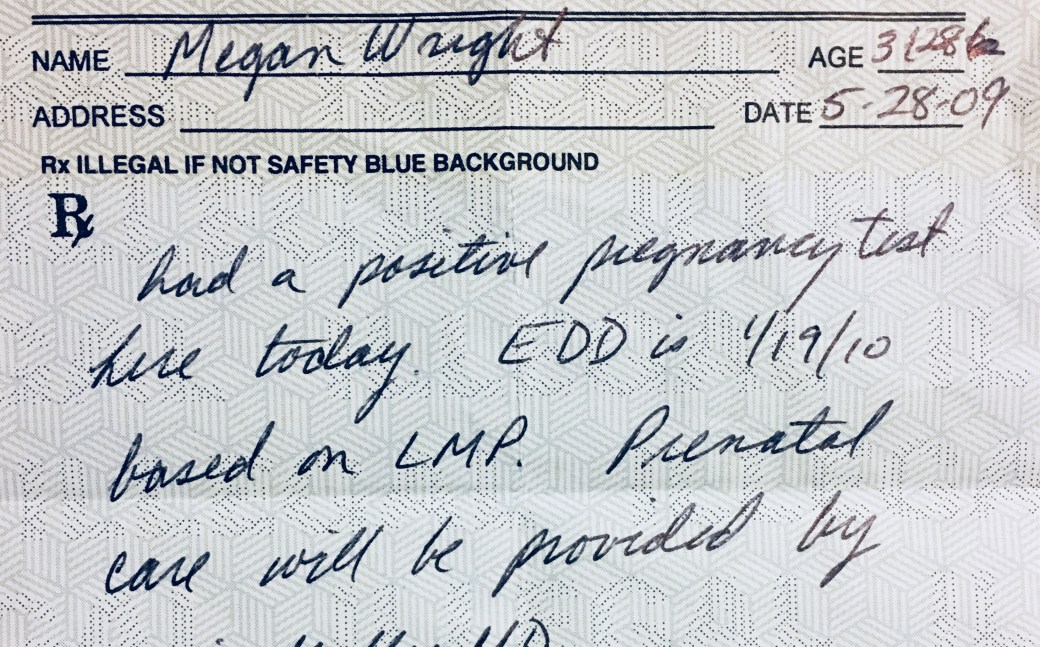 NAME Megan Wright AGE 3/28/82
ADDRESS DATE 5-28-09
Rx ILLEGAL IF NOT SAFETY BLUE BACKGROUND
Rx
had a positive pregnancy test
here today. EDD is 1/19/10
based on LMP. Prenatal
care will be provided by
MD